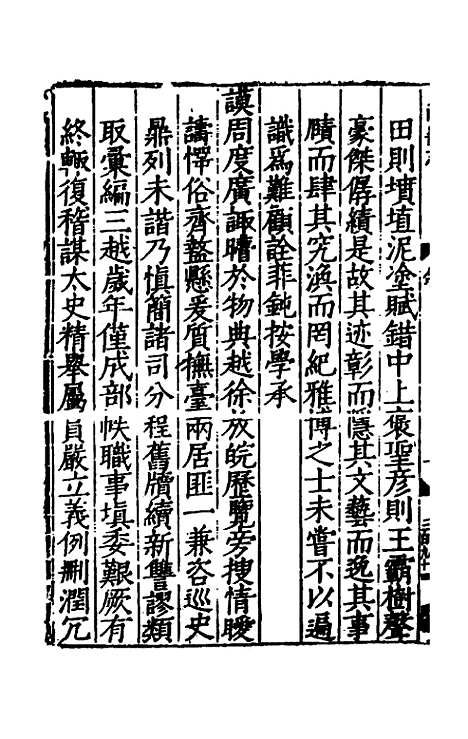 田則墳埴泥塗賦錯中上褒聖彥則王霸樹聲
豪傑孱績是故其迹彰而隱其文藝而逸其事
賾而肆其究渙而罔紀雅博之士未嘗不以遍
識爲難顧詮菲鈍按學承
謨周度廣諏矒於物典越徐放皖歷覽旁搜情瞹
講愕俗齊盭懸爰質撫臺兩居匪一兼咨巡史
鼎列未諧乃愼簡諸司分程舊牘續新讐謬類
取彙編三越歲年僅成部帙職事塡委艱厥有
終輙復稽謀太史精舉屬員嚴立義例刪潤冗